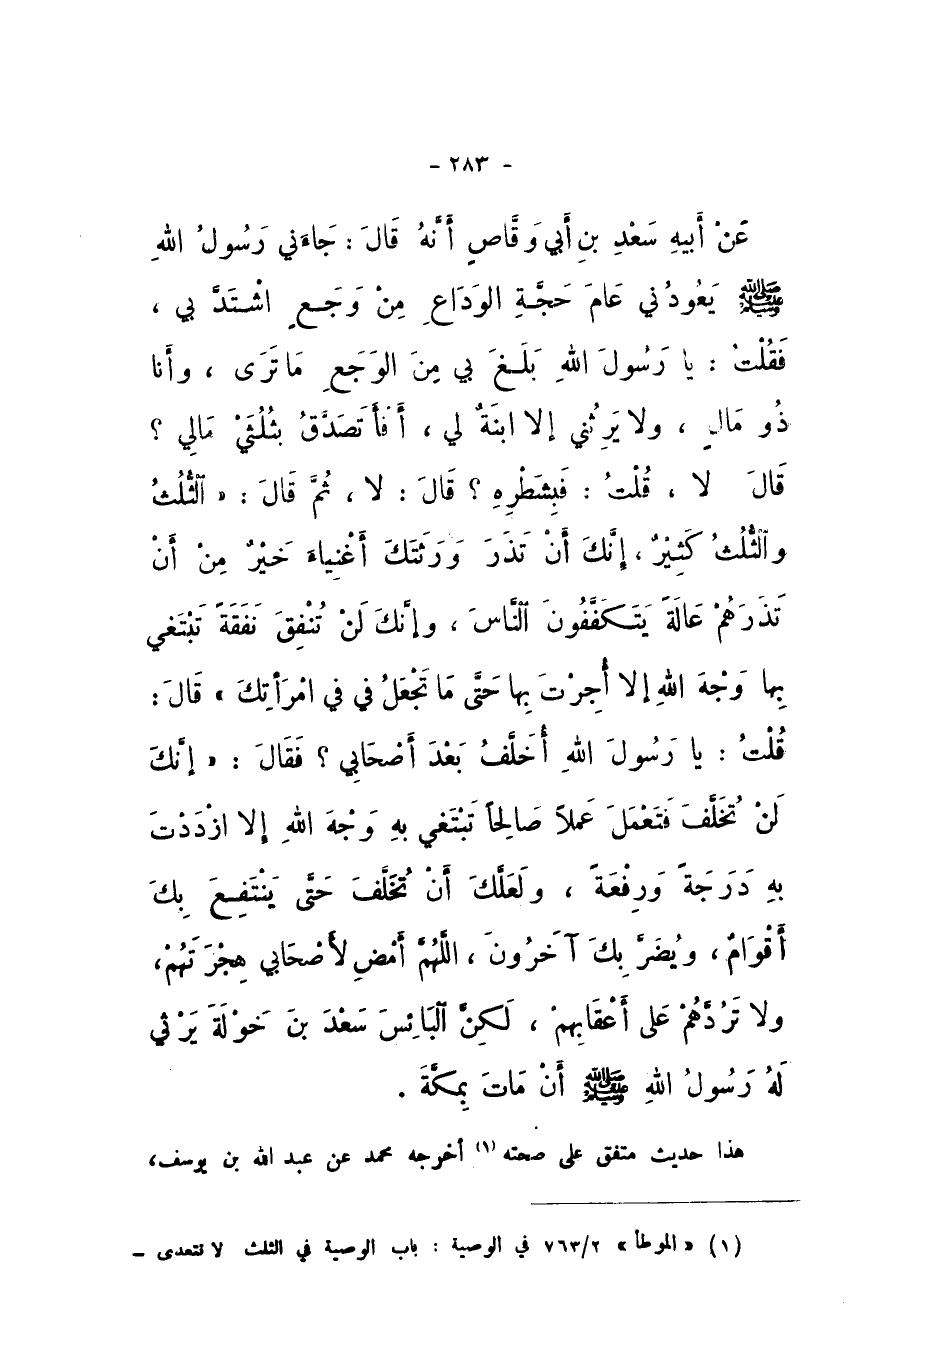 - ٢٨٣ -
عَنْ أَبيهِ سَعْدِ بنِ أَبي وَقَّاصٍ أَنَّهُ قَالَ : جَاءَني رَسُولُ اللهِ
ﷺ يَعُودُني عَامَ حَجَّةِ الوَدَاعِ مِنْ وَجَعٍ اشْتَدَّ بي ،
فَقُلْتُ : يا رَسُولَ اللهِ بَلَغَ بي مِنَ الوَجَعِ مَا تَرَى ، وأَنا
ذُو مَالٍ ، ولا يَرِثُني إلا ابنَةٌ لي ، أَفأَتَصَدَّقُ بثُلُثَيْ مَالِي ؟
قَالَ لا ، قُلْتُ : فَبِشَطْرِهِ ؟ قَالَ : لا ، ثُمَّ قَالَ : « الثُّلُثُ
والثُّلُثُ كَثِيْرٌ ، إِنَّكَ أَنْ تَذَرَ وَرَثَتَكَ أَغْنِياءَ خَيْرٌ مِنْ أَنْ
تَذَرَهُمْ عَالَةً يَتَكَفَّفُونَ النَّاسَ ، وإنَّكَ لَنْ تُنْفِقَ نَفَقَةً تَبْتَغي
بِها وَجْهَ اللهِ إلا أُجِرْتَ بِها حَتَّى مَا تَجْعَلُ في في امْرَأَتِكَ » قَالَ :
قُلْتُ : يا رَسُولَ اللهِ أُخَلَّفُ بَعْدَ أَصْحَابي ؟ فَقَالَ : « إنَّكَ
لَنْ تُخَلَّفَ فَتَعْمَلَ عَملاً صَالِحاً تَبْتَغي بهِ وَجْهَ اللهِ إلا ازْدَدْتَ
بهِ دَرَجَةً وَرِفْعَةً ، ولَعَلَّكَ أَنْ تُخَلَّفَ حَتَّى يَنْتَفِعَ بِكَ
أَقْوَامٌ ، ويُضَرَّ بِكَ آخَرُونَ ، اللَّهُمَّ أَمْضِ لأَصْحَابي هِجْرَتَهُمْ ،
ولا تَرُدَّهُمْ عَلى أَعْقَابِهمْ ، لَكِنَّ البَائِسَ سَعْدَ بنَ خَوْلَةَ يَرْثي
لَهُ رَسُولُ اللهِ ﷺ أَنْ مَاتَ بِمَكَّةَ .
هذا حديث متفق على صحته (١) أخرجه محمد عن عبد الله بن يوسف ،
(١) « الموطأ » ٢/٧٦٣ في الوصية : باب الوصية في الثلث لا تتعدى -